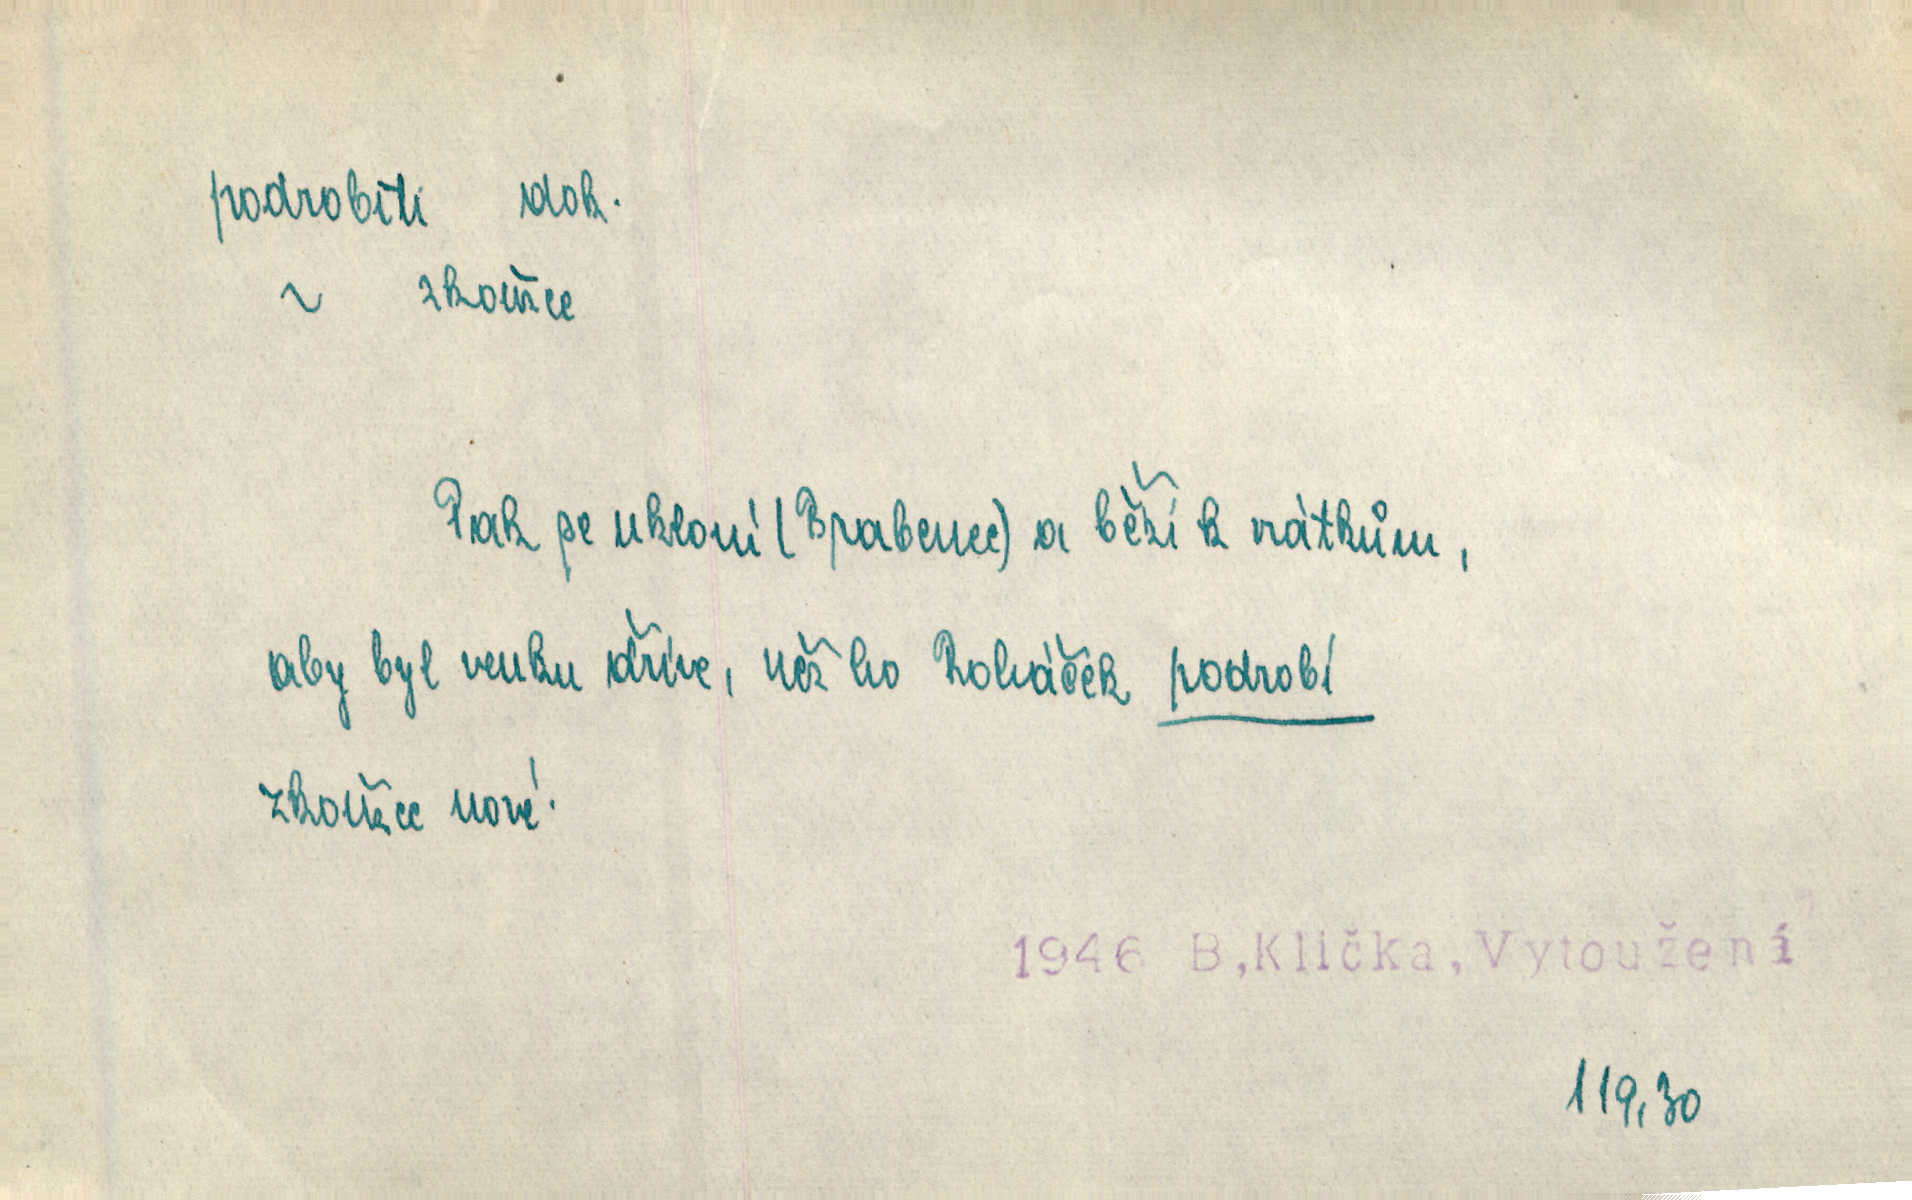 podrobiti dok.
~ zkoušce
Pak se ukloní (Brabenec) a běží k vrátkům,
aby byl venku dříve, než ho Roháček podrobí
zkoušce nové.
1946 B,Klička,Vytoužení
119,30